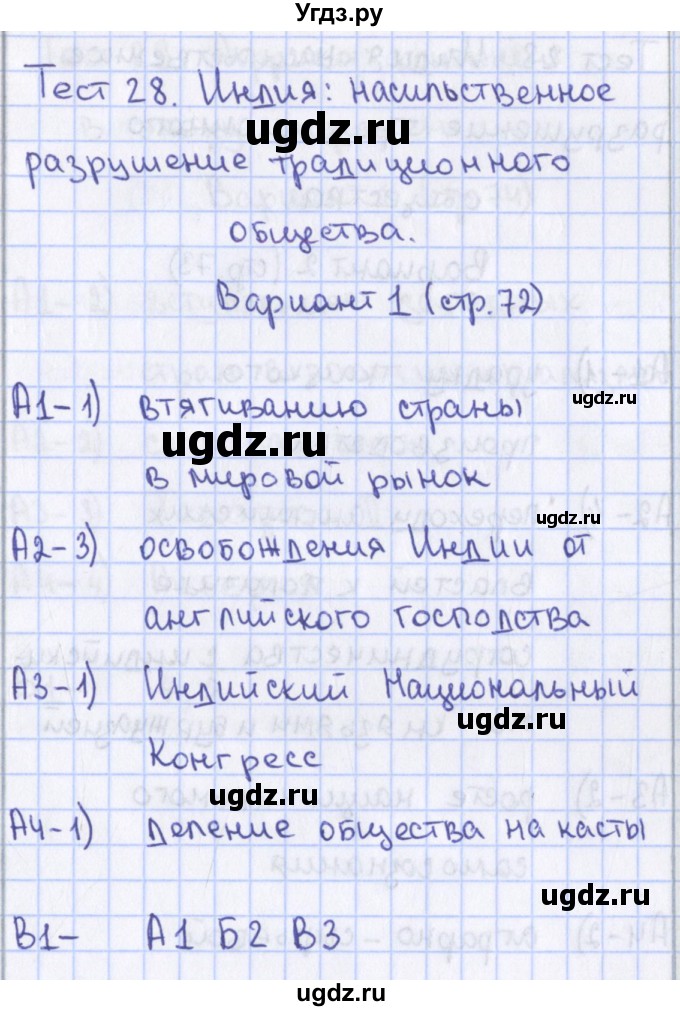 Угдз.ру
Тест 28. Индия: насильственное
ugdz.ru
разрушение традиционного
общества.
Вариант 1 (стр. 72)
А1-1) втягиванию страны
ugdz.ru
ugdz.ru
в мировой рынок
ugdz.ru
А2-3) освобождения Индии от
английского господства
А3-1) Индийский Национальный
ugdz.ru
Конгресс
ugdz.ru
А4-1) деление общества на касты
ugdz.ru
В1- А1 Б2 В3
ugdz.ru
ugdz.ru